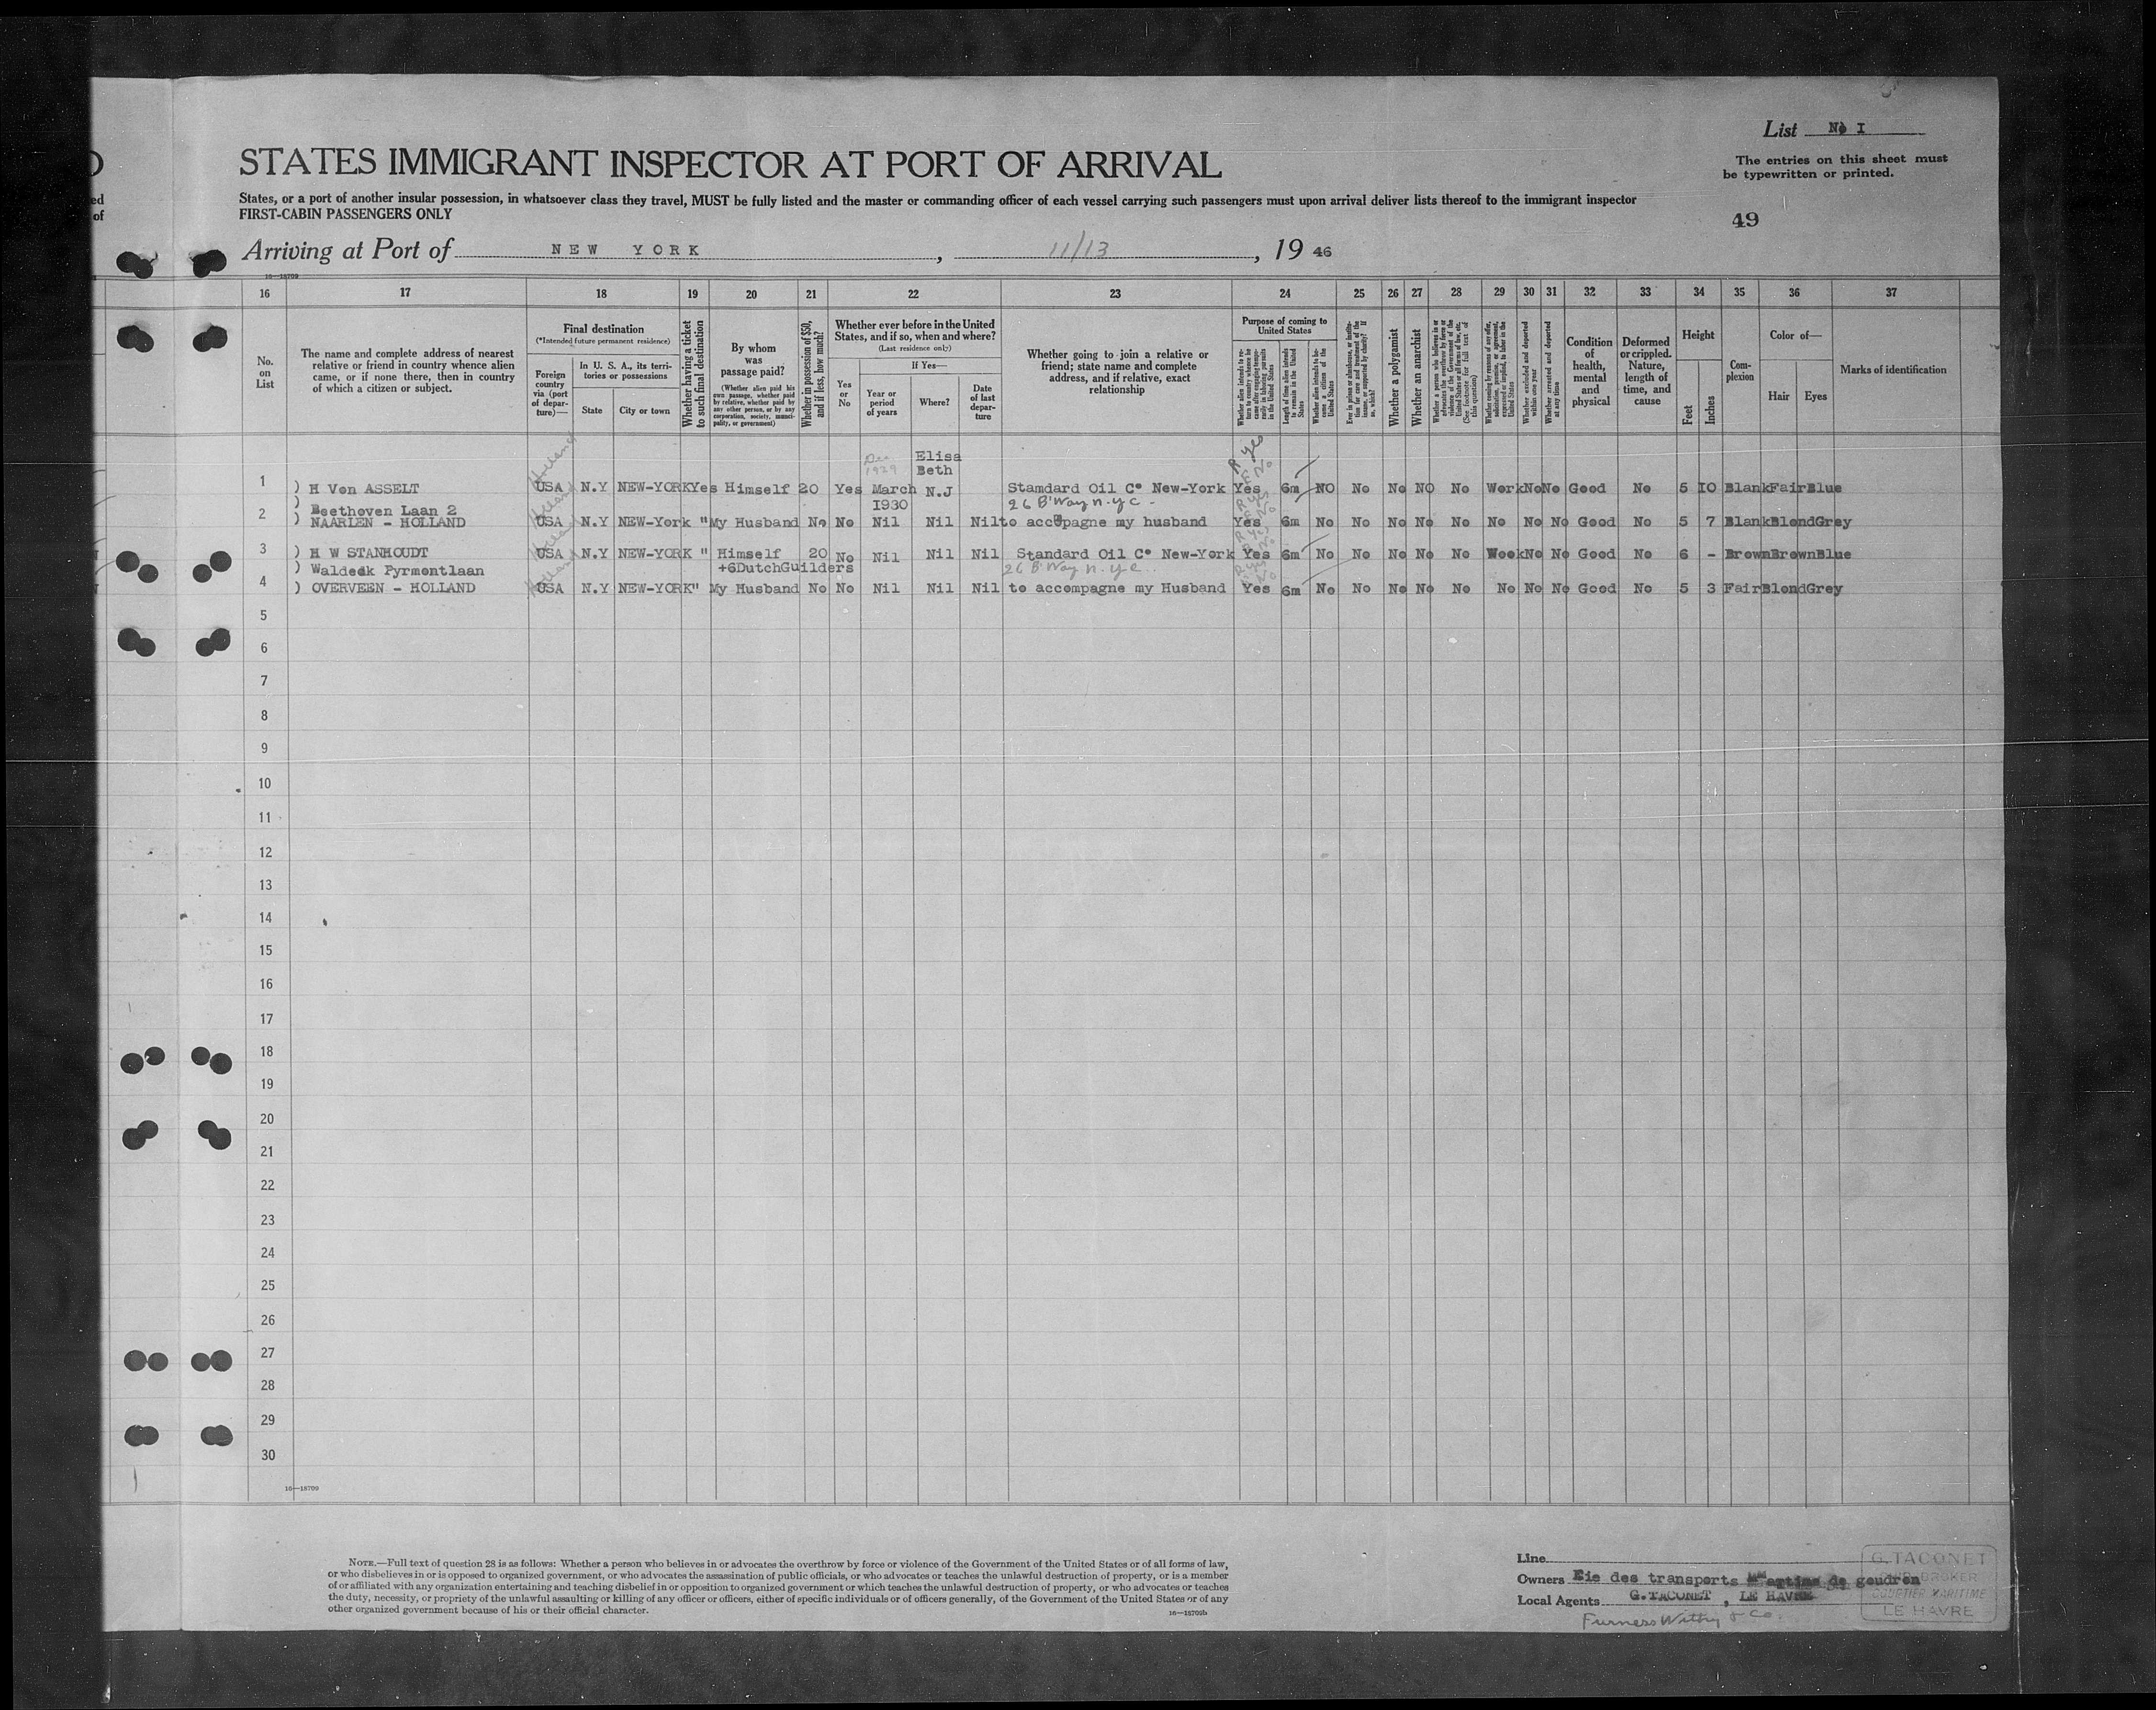 List No I
The entries on this sheet must
be typewritten or printed.
49
STATES IMMIGRANT INSPECTOR AT PORT OF ARRIVAL
States, or a port of another insular possession, in whatsoever class they travel, MUST be fully listed and the master or commanding officer of each vessel carrying such passengers must upon arrival deliver lists thereof to the immigrant inspector
FIRST-CABIN PASSENGERS ONLY
ed
of
Arriving at Port of NEW YORK, 11/13, 19 46
16—18709
16 17 18 19 20 21 22 23 24 25 26 27 28 29 30 31 32 33 34 35 36 37
No.
on
List
The name and complete address of nearest
relative or friend in country whence alien
came, or if none there, then in country
of which a citizen or subject.
Final destination
(*Intended future permanent residence)
Foreign
country
via (port
of depar-
ture)—
In U. S. A., its terri-
tories or possessions
State
City or town
Whether having a ticket
to such final destination
By whom
was
passage paid?
(Whether alien paid his
own passage, whether paid
by relative, whether paid by
any other person, or by any
corporation, society, munici-
pality, or government)
Whether in possession of $50,
and if less, how much?
Whether ever before in the United
States, and if so, when and where?
(Last residence only)
Yes
or
No
If Yes—
Year or
period
of years
Where?
Date
of last
depar-
ture
Whether going to join a relative or
friend; state name and complete
address, and if relative, exact
relationship
Purpose of coming to
United States
Length of time alien intends
to remain in the United
States
Whether alien intends to be-
come a citizen of the
United States
Whether a polygamist
Whether an anarchist
Whether excluded and deported
within one year
Whether arrested and deported
at any time
Condition
of
health,
mental
and
physical
Deformed
or crippled.
Nature,
length of
time, and
cause
Height
Feet
Inches
Com-
plexion
Color of—
Hair
Eyes
Marks of identification
Dec 1929
Elisa
Beth
1 ) H Von ASSELT Holland USA N.Y NEW-YORK Yes Himself 20 Yes March N.J Stamdard Oil Co New-York Yes 6m NO No No NO No Work No No Good No 5 IO Blank Fair Blue
1930
26 B'Way n.y c.
) Beethoven Laan 2
2 ) NAARLEN - HOLLAND Holland USA N.Y NEW-York " My Husband No No Nil Nil Nil to accompagne my husband Yes 6m No No No No No No No No Good No 5 7 Blank Blond Grey
3 ) H W STANHOUDT Holland USA N.Y NEW-YORK " Himself 20 No Nil Nil Nil Standard Oil Co New-York Yes 6m No No No No No Wook No No Good No 6 - Brown Brown Blue
) Waldeck Pyrmontlaan +6DutchGuilders 26 B'Way n.y c.
4 ) OVERVEEN - HOLLAND Holland USA N.Y NEW-YORK " My Husband No No Nil Nil Nil to accompagne my Husband Yes 6m No No No No No No No No Good No 5 3 Fair Blond Grey
5
6
7
8
9
10
11
12
13
14
15
16
17
18
19
20
21
22
23
24
25
26
27
28
29
30
16—18709
NOTE.—Full text of question 28 is as follows: Whether a person who believes in or advocates the overthrow by force or violence of the Government of the United States or of all forms of law,
or who disbelieves in or is opposed to organized government, or who advocates the assassination of public officials, or who advocates or teaches the unlawful destruction of property, or is a member
of or affiliated with any organization entertaining and teaching disbelief in or opposition to organized government or which teaches the unlawful destruction of property, or who advocates or teaches
the duty, necessity, or propriety of the unlawful assaulting or killing of any officer or officers, either of specific individuals or of officers generally, of the Government of the United States or of any
other organized government because of his or their official character.
16—18709b
Line
Owners Eie des transports de goudron
Local Agents G.TACONET, LE HAVRE
Furness Withy & Co.
G. TACONET
BROKER
COURTIER MARITIME
LE HAVRE